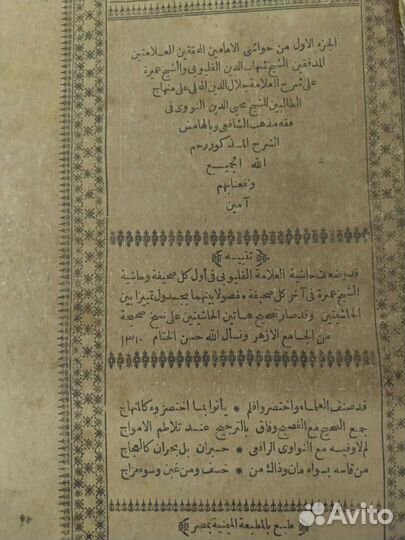 الجزء الاول من حواشى الامامين المحققين العلامتين
المدققين الشيخ شهاب الدين القليوبى والشيخ عميرة
على شرح العلامة جلال الدين المحلى على منهاج
الطالبين للشيخ محيى الدين النووى فى
فقه مذهب الشافعى وبالهامش
الشرح المذكور رحم
الله الجميع
ونفعنا بهم
آمين
﴿تنبيه﴾
قد وضعت حاشية العلامة القليوبى فى أول كل صحيفة وحاشية
الشيخ عميرة فى آخر كل صحيفة مفصولا بينهما بجدول تمييزا بين
الحاشيتين وقد صار تصحيح هاتين الحاشيتين على نسخ صحيحة
من الجامع الازهر ونسأل الله حسن الختام
قد صنف العلماء واختصروا فلم * يأتوا بما اختصروه كالمنهاج
جمع الصحيح مع الفصيح وفاق بالترجيح عند تلاطم الامواج
لم لا وفيه مع النواوى الرافعى * حبران بل بحران كالعجاج
من قاسه بسواه مات وذاك من * خسف ومن غبن وسوء مزاج
﴿طبع بالمطبعة الميمنية بمصر﴾
Avito